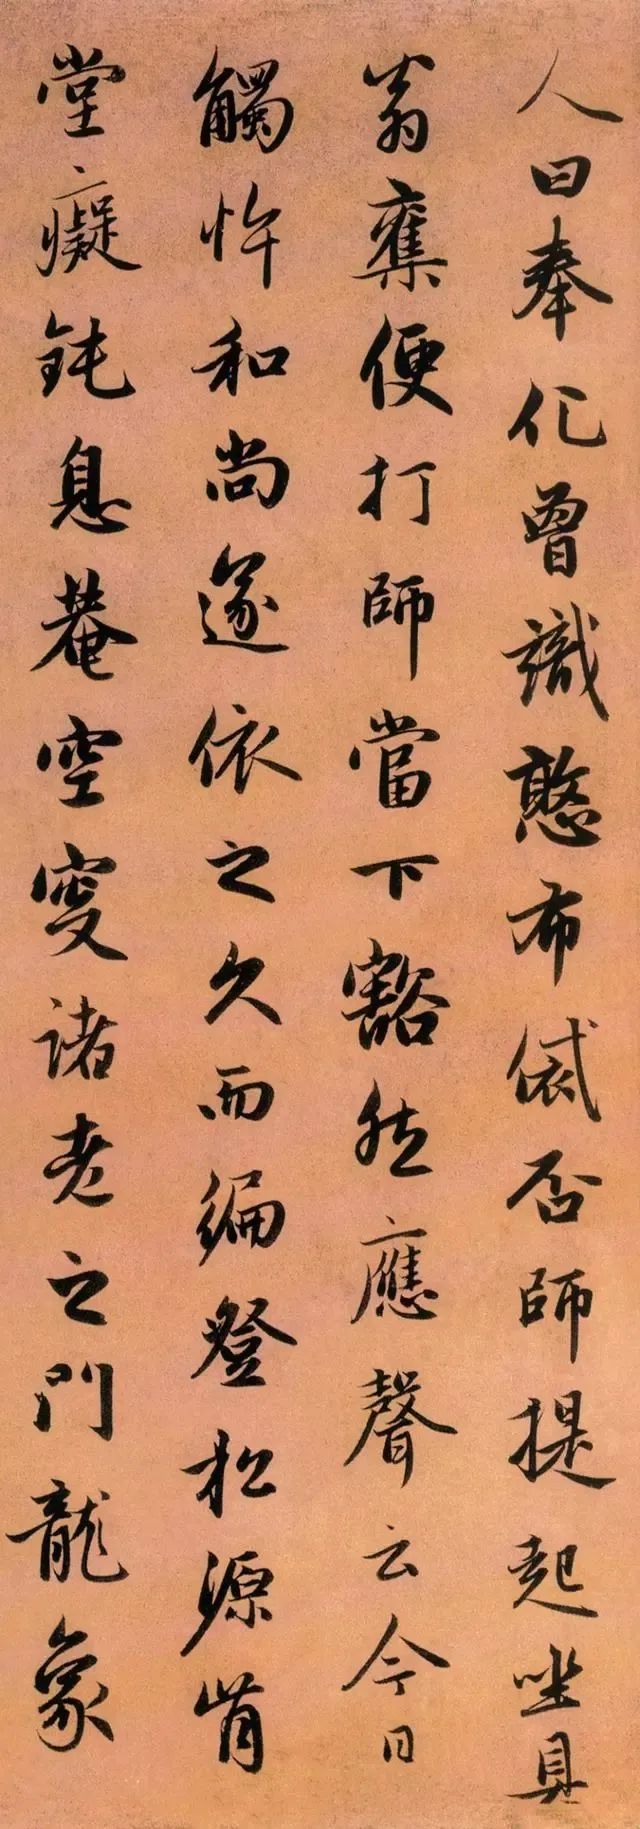 人曰奉化曾識憨布袋否師提起坐具
翁奪便打師當下豁然應聲云今日
觸忤和尚遂依之久而徧登松源肯
堂癡鈍息菴空叟諸老之門龍象